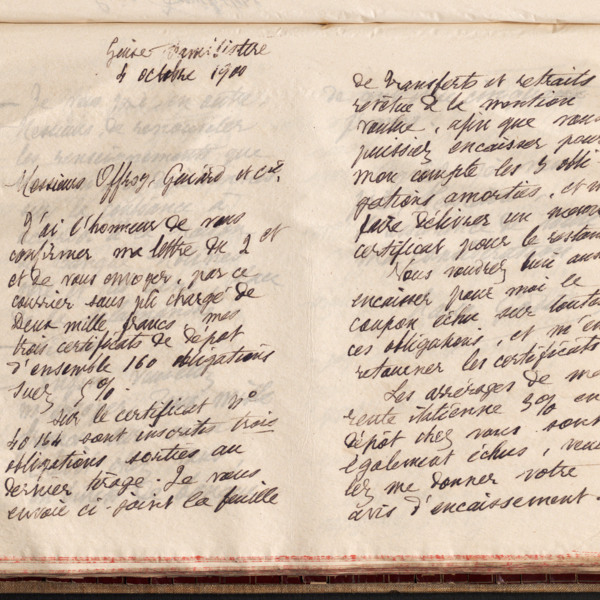 Guise Familistère
4 octobre 1900
Messieurs Offroy, Guiard et Cie,
J'ai l'honneur de vous
confirmer ma lettre du 2 ct
et de vous envoyer, par ce
courrier sous pli chargé de
deux mille francs mes
trois certificats de dépôt
d'ensemble 160 obligations
Suez 5%.
Sur le certificat No
40164 sont inscrites trois
obligations sorties au
dernier tirage. Je vous
envoie ci-joint la feuille
de transferts et retraits
revêtue de la mention
voulue, afin que vous
puissiez encaisser pour
mon compte les 3 obli-
gations amorties, et m
faire délivrer un nouve
certificat pour le restan
Vous voudrez bien auss
encaisser pour moi le
coupon échu sur toutes
ces obligations, et m'en
retourner les certificats
Les arrérages de ma
rente italienne 3% en
dépôt chez vous sont
également échus, veuil
lez me donner votre
avis d'encaissement.